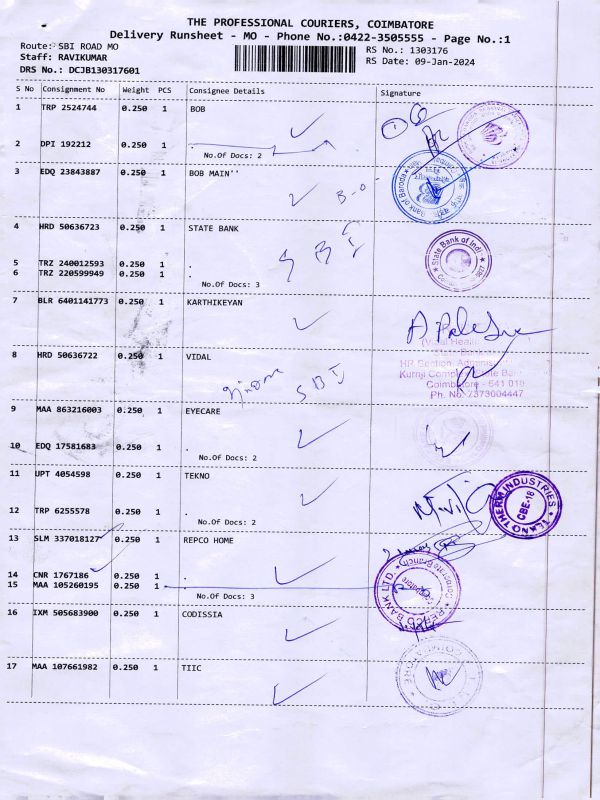 THE PROFESSIONAL COURIERS, COIMBATORE
Delivery Runsheet - MO - Phone No.:0422-3505555 - Page No.:1
Route: SBI ROAD MO
RS No.: 1303176
Staff: RAVIKUMAR
RS Date: 09-Jan-2024
DRS No.: DCJB130317601
S No Consignment No Weight PCS Consignee Details Signature
1 TRP 2524744 0.250 1 BOB
2 DPI 192212 0.250 1 .
No.Of Docs: 2
3 EDQ 23843887 0.250 1 BOB MAIN''
Bank of Baroda
4 HRD 50636723 0.250 1 STATE BANK
SBI
State Bank of Indi
5 TRZ 240012593 0.250 1 .
6 TRZ 220599949 0.250 1 .
No.Of Docs: 3
7 BLR 6401141773 0.250 1 KARTHIKEYAN
8 HRD 50636722 0.250 1 VIDAL
SBI
Coimbatore - 641 018
Ph. No. 7373004447
9 MAA 863216003 0.250 1 EYECARE
10 EDQ 17581683 0.250 1 .
No.Of Docs: 2
11 UPT 4054598 0.250 1 TEKNO
TEKNOTHERM INDUSTRIES
CBE-18
12 TRP 6255578 0.250 1 .
No.Of Docs: 2
13 SLM 337018127 0.250 1 REPCO HOME
14 CNR 1767186 0.250 1 .
15 MAA 105260195 0.250 1 .
No.Of Docs: 3
REPCO BANK LTD.
Coimbatore
16 IXM 505683900 0.250 1 CODISSIA
17 MAA 107661982 0.250 1 TIIC